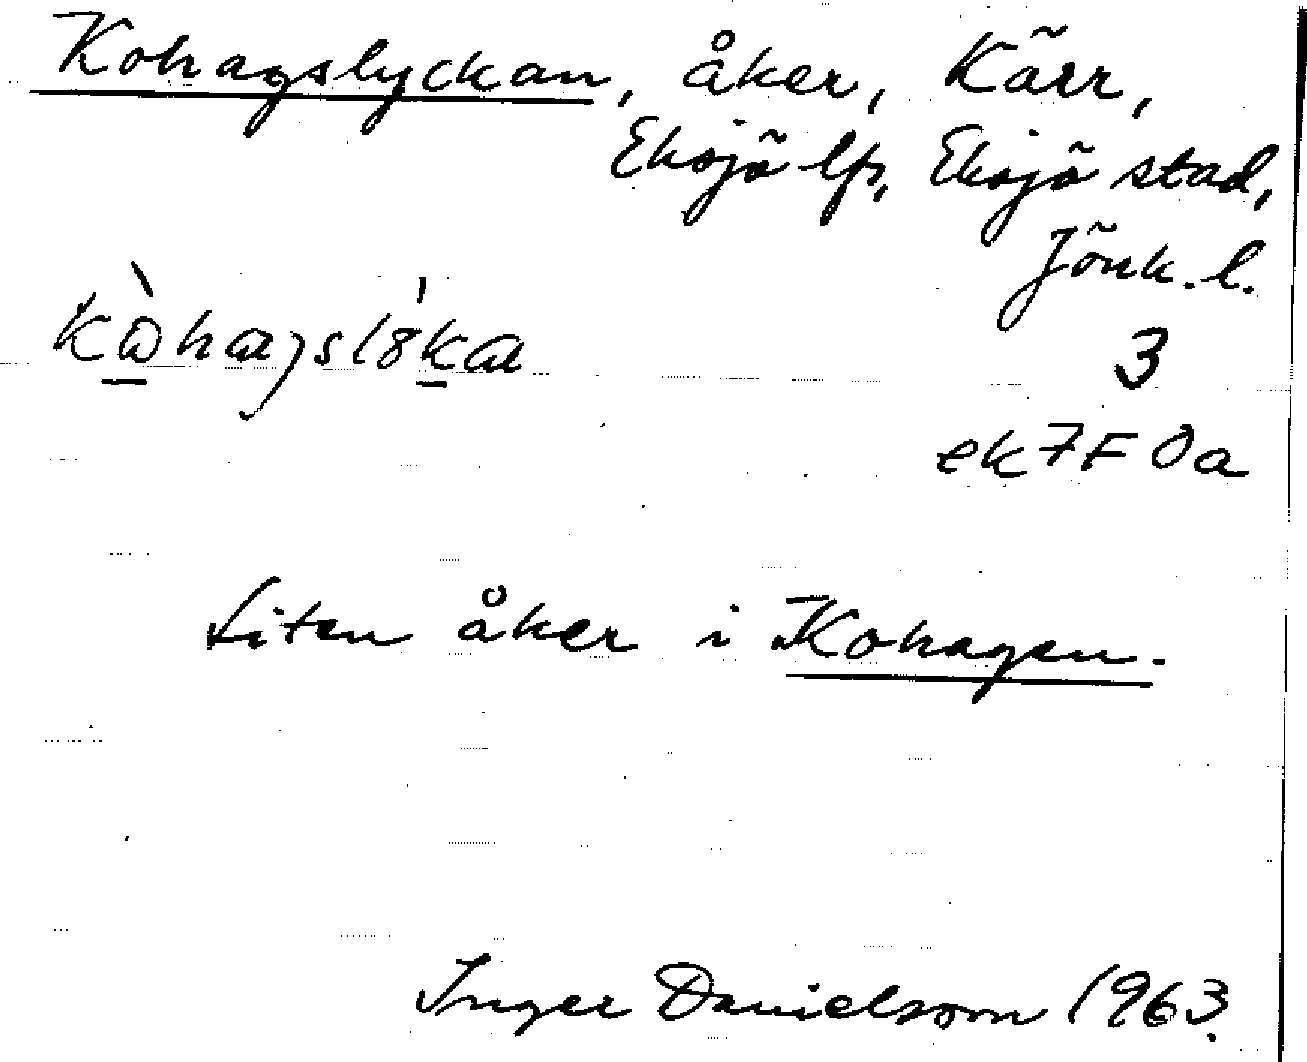 Kohagslyckan, åker, Kärr,
Eksjö lfs, Eksjö stad,
Jönk. l.
3
ek7F0a
Liten åker i Kohagen.
Inger Danielsson 1963